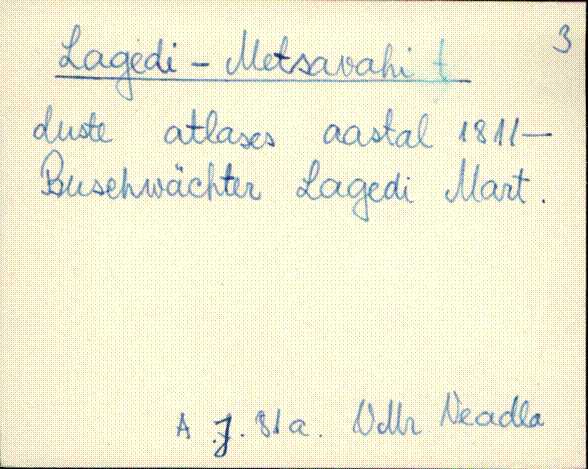 3
Lagedi – Metsavahi t
duste atlases aastal 1811 –
Buschwächter Lagedi Mart.
A. J. 81a. VMr Neadla